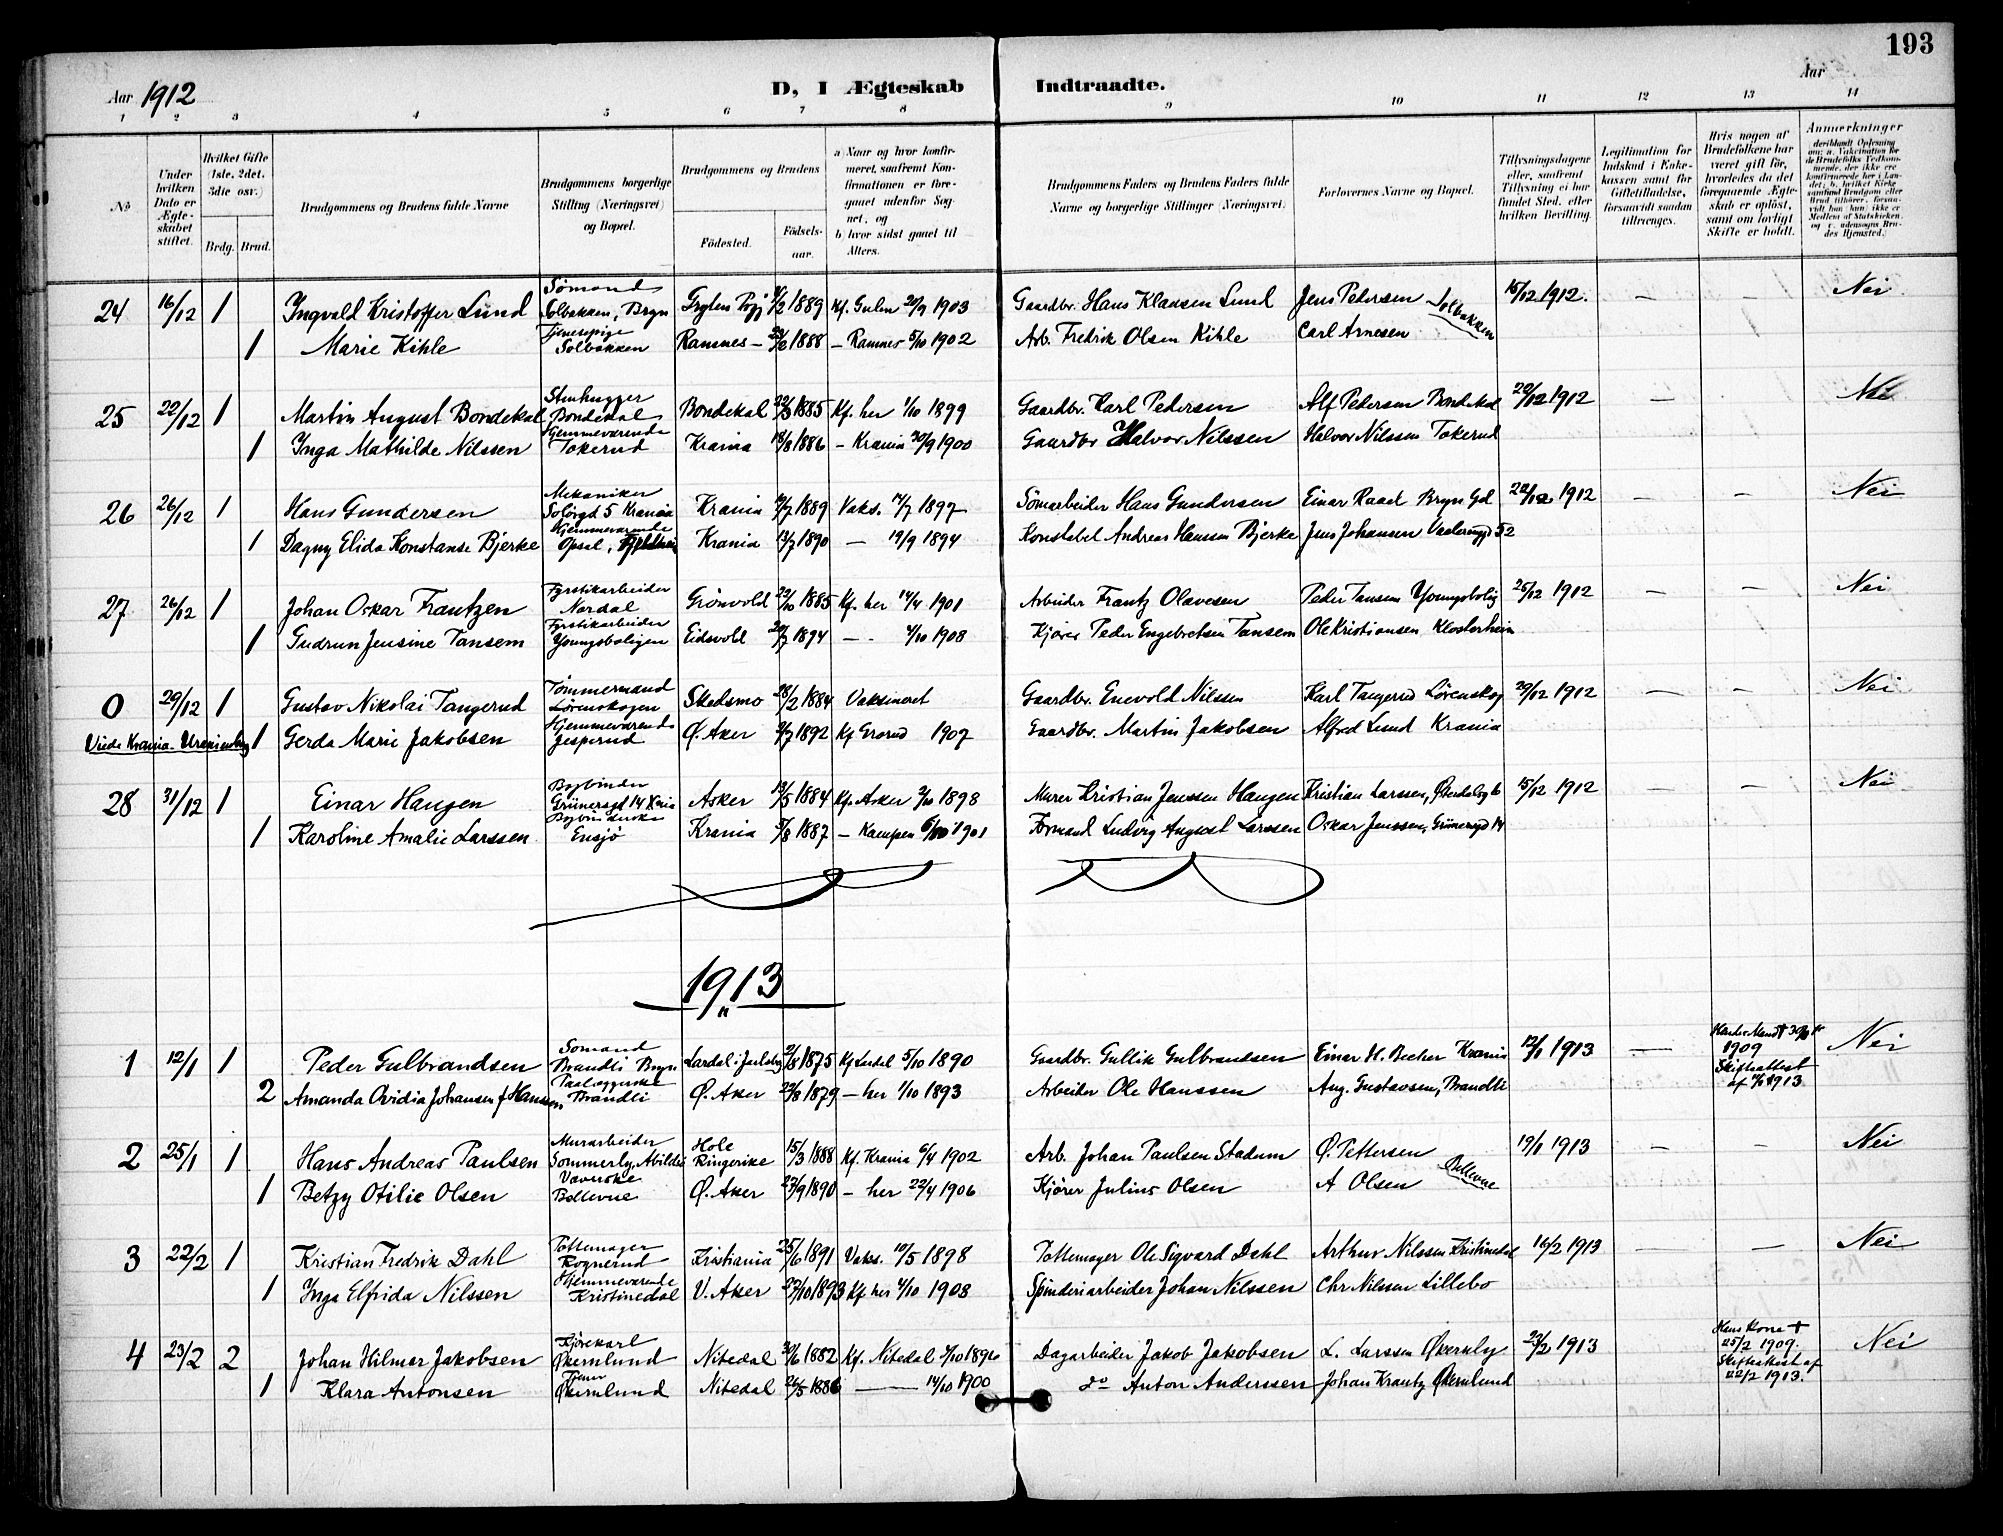 193
Aar 1912
D, I Ægteskab Indtraadte.
Aar
1 2 3 4 5 6 7 8 9 10 11 12 13 14
No
Under hvilken Dato er Ægteskabet stiftet.
Hvilket Gifte (1ste, 2det, 3die osv.)
Brdg. Brud.
Brudgommens og Brudens fulde Navne
Brudgommens borgerlige Stilling (Næringsvei) og Bopæl.
Brudgommens og Brudens
Fødested. Fødselsaar.
a) Naar og hvor konfirmeret, saafremt Konfirmationen er foregaaet udenfor Sognet, og
b) hvor sidst gaaet til Alters.
Brudgommens Faders og Brudens Faders fulde Navne og borgerlige Stillinger (Næringsvei)
Forlovernes Navne og Bopæl.
Tillysningsdagene eller, saafremt Tillysning ei har fundet Sted, efter hvilken Bevilling.
Legitimation for Indskud i Enkekassen samt for Giftetilladelse, forsaavidt saadan tiltrænges.
Hvis nogen af Brudefolkene har været gift før, hvorledes da det foregaaende Ægteskab er opløst, samt om lovligt Skifte er holdt.
Anmærkninger
24 16/12 1 Ingvald Kristoffer Lund Sømand Solbakken, Bryn 1889 Kf. Gulen 20/9 1903 Gaardbr. Hans Klausen Lund Jens Pedersen Solbakken 15/12 1912. — — Nei
1 Marie Kihle Tjenestepige Solbakken Ramnes 1888 — Ramnes 5/10 1902 Arb. Fredrik Olsen Kihle Carl Arnesen
25 22/12 1 Martin August Bondekal Stenhugger Bondekal Bondekal 22/3 1885 Kf. her 1/10 1899 Gaardbr. Karl Pedersen Alf Pedersen Bondekal 22/12 1912 — Nei
1 Inga Mathilde Nilssen Hjemmeværende Tokerud Krania 18/8 1886 — Krania 30/9 1900 Gaardbr Halvor Nilssen Halvor Nilssen Tokerud
26 26/12 1 Hans Gundersen Mekaniker Solørgd 5 Krania Krania 1889 Vaks. 14/7 1897 Sömarbeider Hans Gundersen Einar Raad Bryn Gd 22/12 1912 — — Nei
1 Dagny Elida Konstanse Bjerke Hjemmeværende Opsal, Krania 13/7 1890 — 19/9 1894 Konstabel Andreas Hanssen Bjerke Jens Johansen 52
27 26/12 1 Johan Oskar Frantzen Fyrstikarbeider Nordal Grönvold 22/10 1885 Kf. her 14/4 1901 Arbeider Frantz Olavesen Peder Tansem Youngsbolig 25/12 1912 — — Nei
1 Gudrun Jensine Tansem Fyrstikarbeider Youngsboligen Eidsvold 20/7 1894 —. 4/10 1908 Kjører Peder Engebretsen Tansem Ole Kristiansen Klosterheim
0 29/12 1 Gustav Nikolai Tangerud Tømmermand Lørenskogen Skedsmo 28/2 1884 Vaksineret Gaardbr. Enevold Nilssen Karl Tangerud Lørenskog 29/12 1912 — — Nei
Viede Krania Uranienbrg 1 Gerda Marie Jakobsen Hjemmeværende Jesperud Ø. Aker 1892 Kf Grorud 1907 Gaardbr. Martin Jakobsen Alfred Lund Krania
28 31/12 1 Einar Haugen Bogbinder Grünersgd 14 Kria Asker 1884 Kf. Asker 2/10 1898 Murer Kristian Jenssen Haugen Kristian Larssen, 15/12 1912 — — Nei
1 Karoline Amalie Larssen Bogbinderske Ensjø Krania 5/8 1887 — Kampen 1901 Formand Ludvig August Larssen Oskar Jenssen, Grünersgd 14
1913
1 12/1 1 Peder Gulbrandsen Sömand Brandli Bryn Lardal i Jarlsbg 2/8 1875 Kf Lardal 5/10 1890 Gaardbr. Gullik Gulbrandsen Einar H. Becher Krania 12/1 1913 — Hendes Mand † 30/9 1909 Skifteattest af 1913 Nei
2 Amanda Ovidia Johansen f Hanssen Brandli Ø. Aker 23/8 1879 — her 1/10 1893 Arbeider Ole Hanssen Aug. Gustavsen, Brandli
2 25/1 1 Hans Andreas Paulsen Murarbeider Sommerly, Abildsø Hole Ringerike 15/3 1888 Kf. Krania 6/4 1902 Arb. Johan Paulsen Stadum Ø. Pettersen Bellevue 19/1 1913 — — Nei
1 Betzy Otilie Olsen Væverske Bellevue Ø. Aker 27/9 1890 — her 22/4 1906 Kjører Julius Olsen A Olsen
3 22/2 1 Kristian Fredrik Dahl Pottemager Rognerud Kristiania 25/6 1891 Vaks. 10/5 1898 Pottemager Ole Sigvard Dahl Arthur Nilssen Kristinedal 16/2 1913 — — Nei
1 Inga Elfrida Nilssen Hjemmeværende Kristinedal V. Aker 27/10 1893 Kf her 4/10 1908 Spinderiarbeider Johan Nilssen Chr Nilssen Lillebo
4 23/2 2 Johan Hilmar Jakobsen Kjørekarl Økernlund Nitedal 1882 Kf. Nitedal 1896 Dagarbeider Jakob Jakobsen L. Larssen Økernly 23/2 1913 Hans Kone † 25/2 1909. Skifteattest af 22/2 1913. Nei
1 Klara Antonsen Tjener Økernlund Nitedal 26/5 1886 — 14/10 1900 do Anton Anderssen Johan Krantz Økernlund